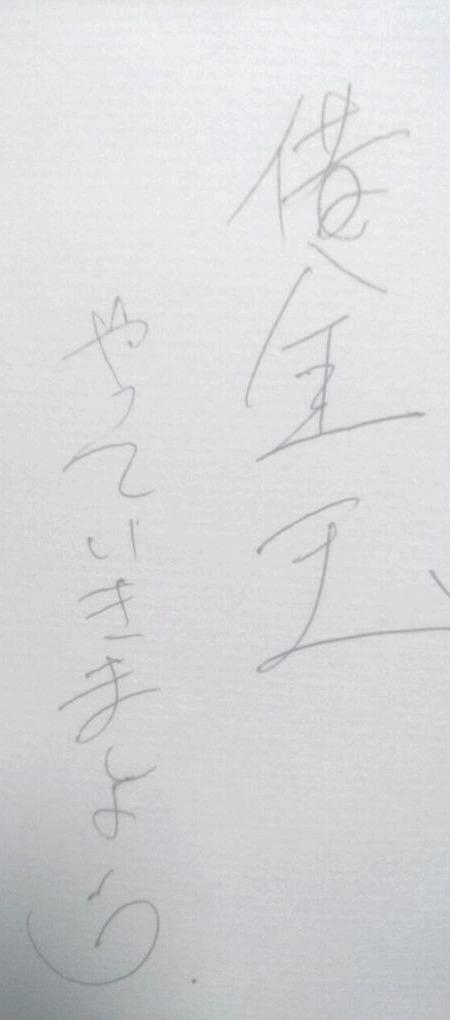 借金玉
やっていきましょう.